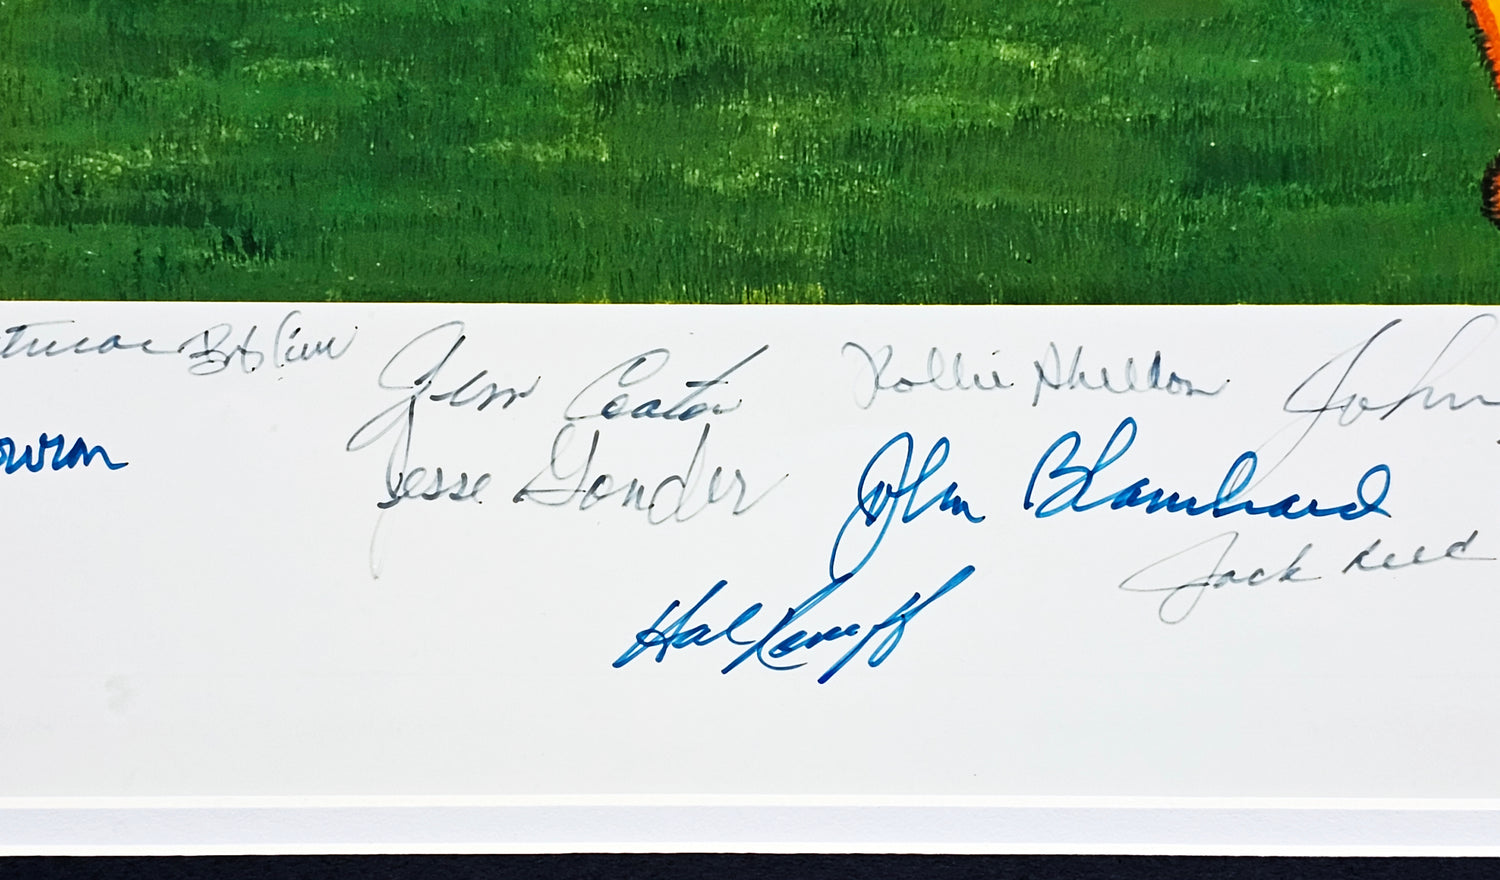 Bob Cerv Jim Coates Rollie Sheldon John
Jesse Gonder John Blanchard
Jack Reed
Hal Reniff